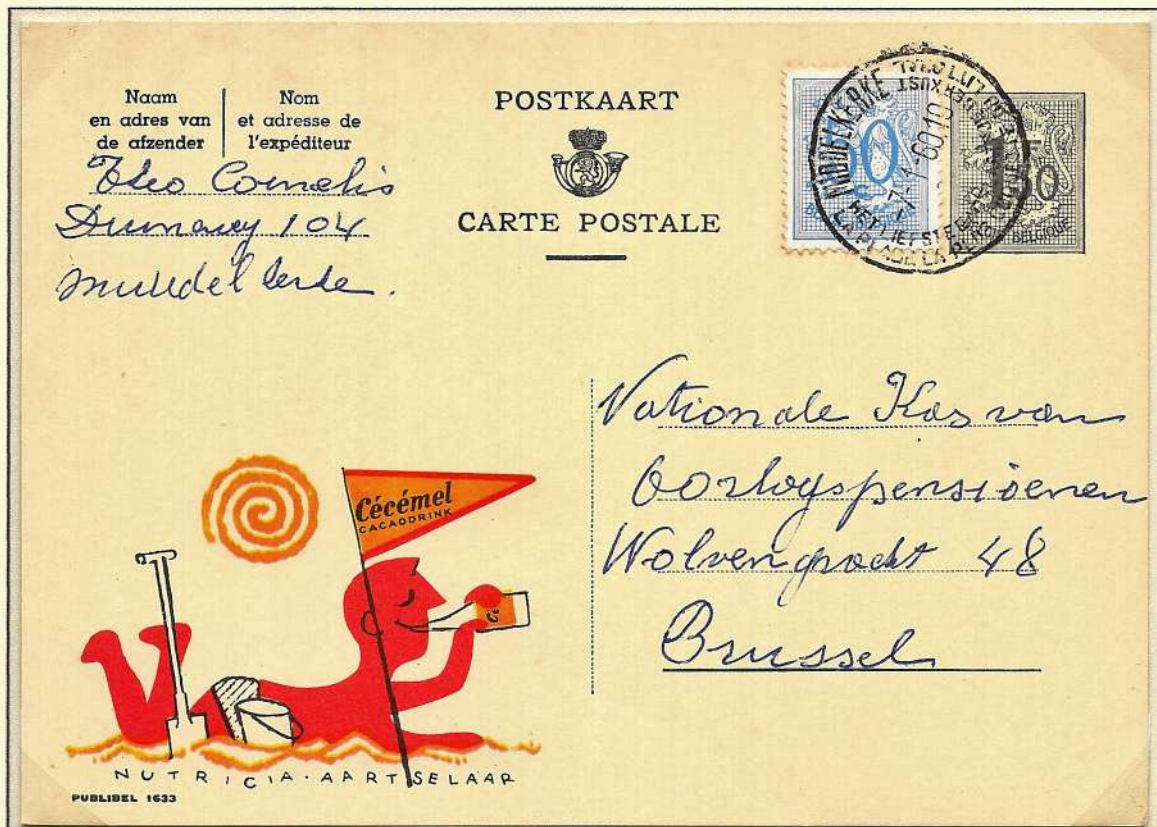 Naam
en adres van
de afzender
Nom
et adresse de
l'expéditeur
Theo Cornelis
104
POSTKAART
CARTE POSTALE
MIDDELKERKE
HET LIEFSTE
LA PLAGE LA
BELGIQUE
Nationale Kas van
Oorlogspensioenen
Wolvengracht 48
Brussel
Cécémel
CACAODRINK
NUTRICIA·AARTSELAAR
PUBLIBEL 1633